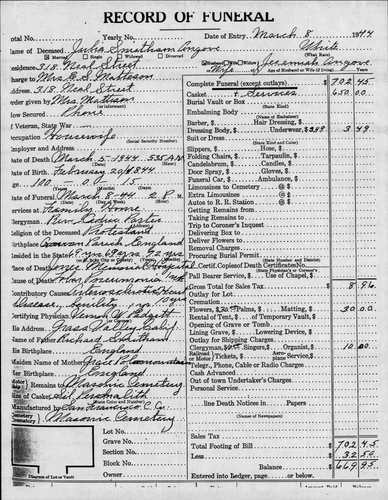 RECORD OF FUNERAL
Total No. Yearly No. Date of Entry March 8 1944
Name of Deceased Angove White
Married Single Widowed Divorced
Residence 318 Neal Street Wife of Jeremiah Angove
Charge to Mrs. E. S. Matteson
Address 318 Neal Street
Order given by Mrs. Matteson
How Secured Phone
If Veteran, State War
Occupation Housewife
(Social Security Number)
Employer and Address
Date of Death March 5-1944 5:35 A.M.
Date of Birth February 20/1844
Age 100 0 15
Date of Funeral March 8-44 2 P.M.
Services at Family Home
Clergyman Rev.
Religion of the Deceased Protestant
Birthplace Parish England
Resided in the State
Place of Death Memorial Hospital
Cause of Death Pneumonia
Contributory Causes
Disease, Senility
Certifying Physician Vernon W. Padgett
His Address Grass Valley, Calif.
Name of Father Richard
His Birthplace England
Maiden Name of Mother
Her Birthplace England
Remains to Masonic Cemetery
Size of Casket
Manufactured by San Francisco C. Co.
Cemetery Masonic Cemetery
Lot No.
Grave No.
Section No.
Block No.
Owner
Diagram of Lot or Vault
Complete Funeral (except outlays) $ 702 45
Casket & Services 650 00
Burial Vault or Box
(State Kind)
Embalming Body
(State Kind)
Barber, $ Hair Dressing, $
Dressing Body, $ Underwear, $3.49 3 49
Suit or Dress
Slippers, $ Hose, $
Folding Chairs, $ Tarpaulin, $
Candelabrum, $ Candles, $
Door Spray, $ Gloves, $
Funeral Car, $ Ambulance, $
Limousines to Cemetery @ $
Extra Limousines @ $
Autos to R. R. Station @ $
Getting Remains from
Taking Remains to
Trip to Coroner's Inquest
Delivering Box to
Deliver Flowers to
Removal Charges
Procuring Burial Permit
(State Number and District)
Certif. Copies of Death Certificates No.
(State Physician's or Coroner's)
Pall Bearer Service, $ Use of Chapel, $
Gross Total for Sales Tax $ 8 96
Outlay for Lot
Cremation
Flowers, $ Palms, $ Matting, $ 30 00
Rental of Tent, $ of Temporary Vault, $
Opening of Grave or Tomb
Lining Grave, $ Lowering Device, $
Outlay for Shipping Charges
Clergyman, $ Singers, $ Organist, $ 10 00
Railroad or Motor Tickets, $ Aeroplane Service, $
Telegr., Phone, Cable or Radio Charges
Cash Advanced
Out of town Undertaker's Charges
Personal Service
line Death Notices in Papers
(Names of Newspapers)
Sales Tax
Total Footing of Bill $ 702 45
Less $ 32 50
Balance $ 669 95
Entered into Ledger, page or below.